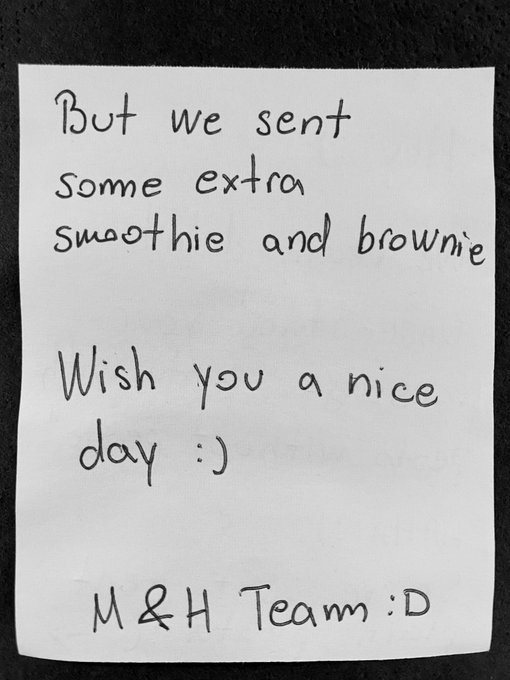 But we sent
some extra
smoothie and brownie
Wish you a nice
day :)
M & H Team :D